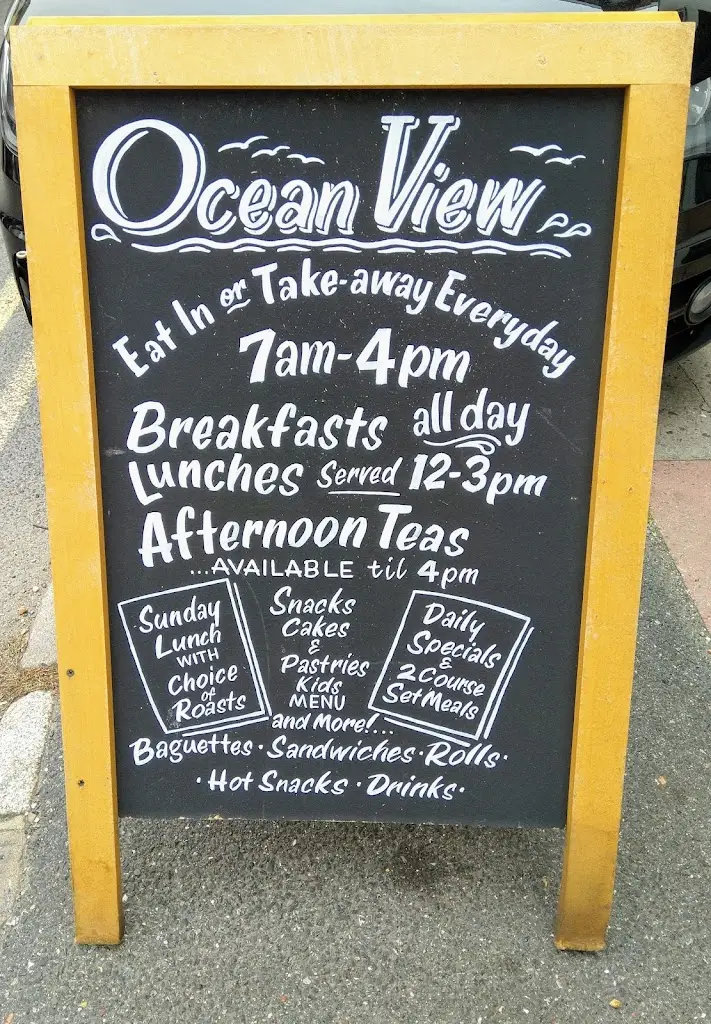 Ocean View
Eat In or Take-away Everyday
7am-4pm
Breakfasts all day
Lunches Served 12-3pm
Afternoon Teas
...AVAILABLE til 4pm
Sunday
Lunch
WITH
Choice
of
Roasts
Snacks
Cakes
&
Pastries
Kids
MENU
and More!...
Daily
Specials
&
2 Course
Set Meals
Baguettes · Sandwiches · Rolls ·
· Hot Snacks · Drinks ·